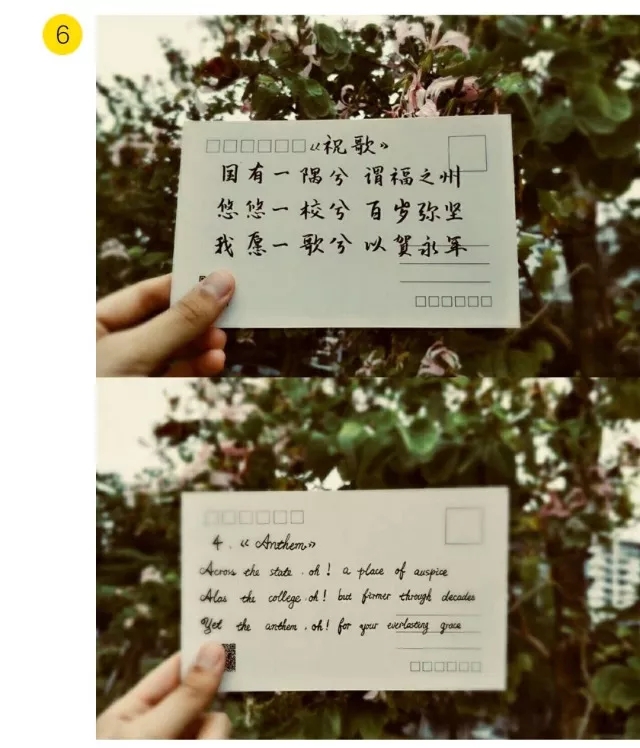 6
《祝歌》
国有一隅兮 谓福之州
悠悠一校兮 百岁弥坚
我愿一歌兮 以贺永年
4. 《Anthem》
Across the state . oh! a place of auspice
Alas the college . oh! but firmer through decades
Yet the anthem . oh! for your everlasting grace